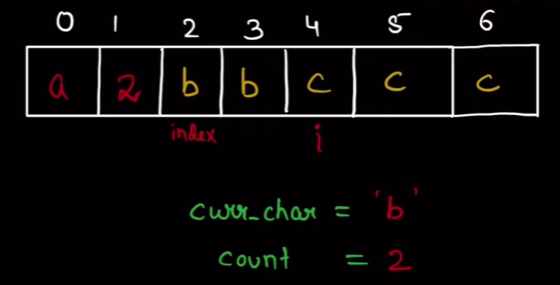 0 1 2 3 4 5 6
a 2 b b c c c
index i
curr_char = 'b'
count = 2